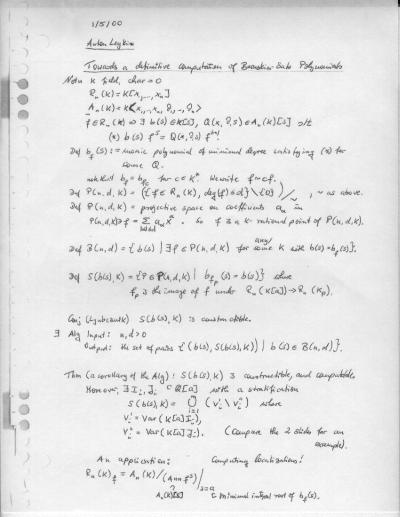 1/5/00
Anton Leykin
Towards a definitive computation of Bernstein-Sato Polynomials
Notn K field, char = 0
R_n(K) = K[x_1,...,x_n]
A_n(K) = K<x_1,..,x_n, ∂_1,..,∂_n>
f∈R_n(K) ⇒ ∃ b(s)∈K[s], Q(x,∂,s)∈A_n(K)[s] s/t
(*) b(s) f^s = Q(x,∂,s) f^{s+1}
Def b_f(s) := monic polynomial of minimal degree satisfying (*) for
some Q.
note that b_f = b_{fc} for c∈K*. We write f~cf.
Def P(n,d,K) = ({f∈R_n(K), deg(f)≤d}\{0})/~, ~ as above.
Def P(n,d,K) = projective space on coefficients a_α in
P(n,d,K)∋f = Σ_{|α|≤d} a_α x^α. So f is a K-rational point of P(n,d,K).
Def B(n,d) = {b(s) | ∃ f∈P(n,d,K) for any some K with b(s) = b_f(s)}.
Def S(b(s),K) = {P∈P(n,d,K) | b_{f_P}(s) = b(s)} where
f_P is the image of f under R_n(K[a])→R_n(K_P).
Conj (Lyubeznik) S(b(s),K) is constructible.
∃ Alg Input: n,d>0
Output: the set of pairs {(b(s), S(b(s),K)) | b(s)∈B(n,d)}.
Thm (a corollary of the Alg): S(b(s),K) is constructible, and computable.
Moreover, ∃ I_i, J_i ⊂ Q[a] with a stratification
S(b(s),K) = ∪_{i=1}^m (V_i' \ V_i'') where
V_i' = Var(K[a]I_i),
V_i'' = Var(K[a]J_i). (Compare the 2 slides for an
example).
An application: Computing localizations!
R_n(K)_f = A_n(K)/(Ann f^s)|_{s=a}
A_n(K)[s] minimal integral root of b_f(s).